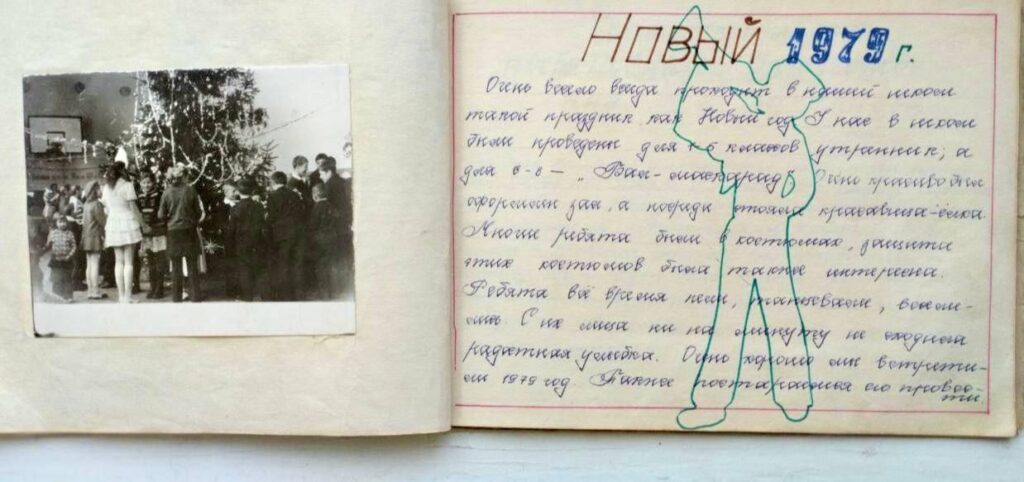 Новый 1979 г.
Очень весело всегда проходит в нашей школе
такой праздник как Новый год. У нас в школе
были проведены для 4-5 классов утренник, а
для 6-8 — „Бал-маскарад". Очень красиво был
оформлен зал, а посреди стояла красавица-ёлка.
Многие ребята были в костюмах, защита
этих костюмов была также интересна.
Ребята всё время пели, танцевали, весели-
лись. С их лица ни на минуту не сходила
радостная улыбка. Очень хорошо мы встрети-
ли 1979 год. Также постараемся его провес-
ти.